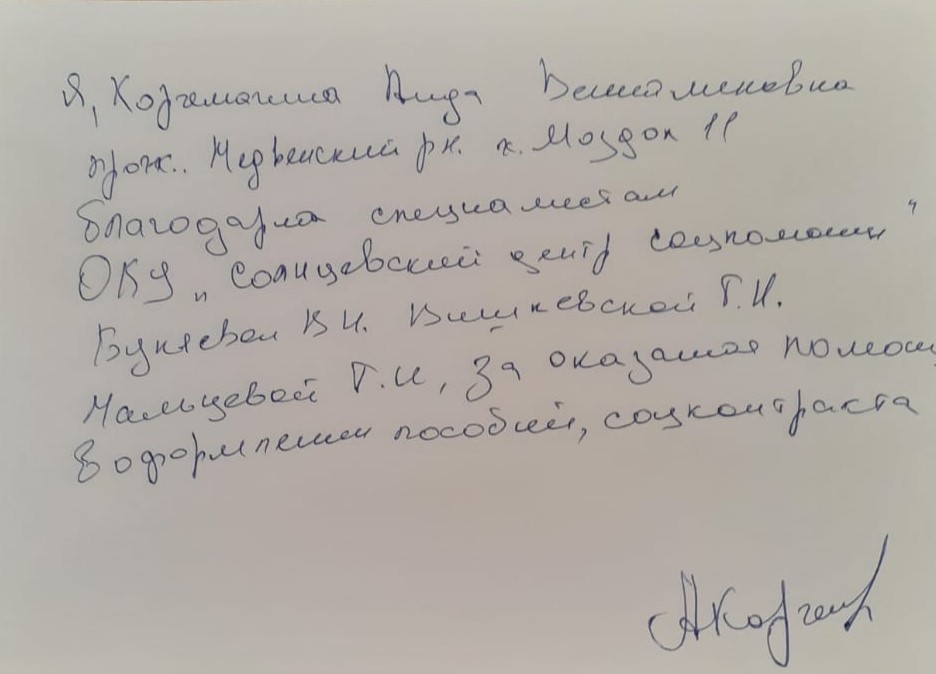 Я, Корчемагина Аида Вениаменовна
прож.. Медвенский рн. х. Моздок 11
благодарна специалистам
ОКУ „Солнцевский центр соцпомощи"
Букяевой В.И. Вишневской Г.И.
Мальцевой Т.И, за оказание помощ
в оформлении пособий, соцконтракта